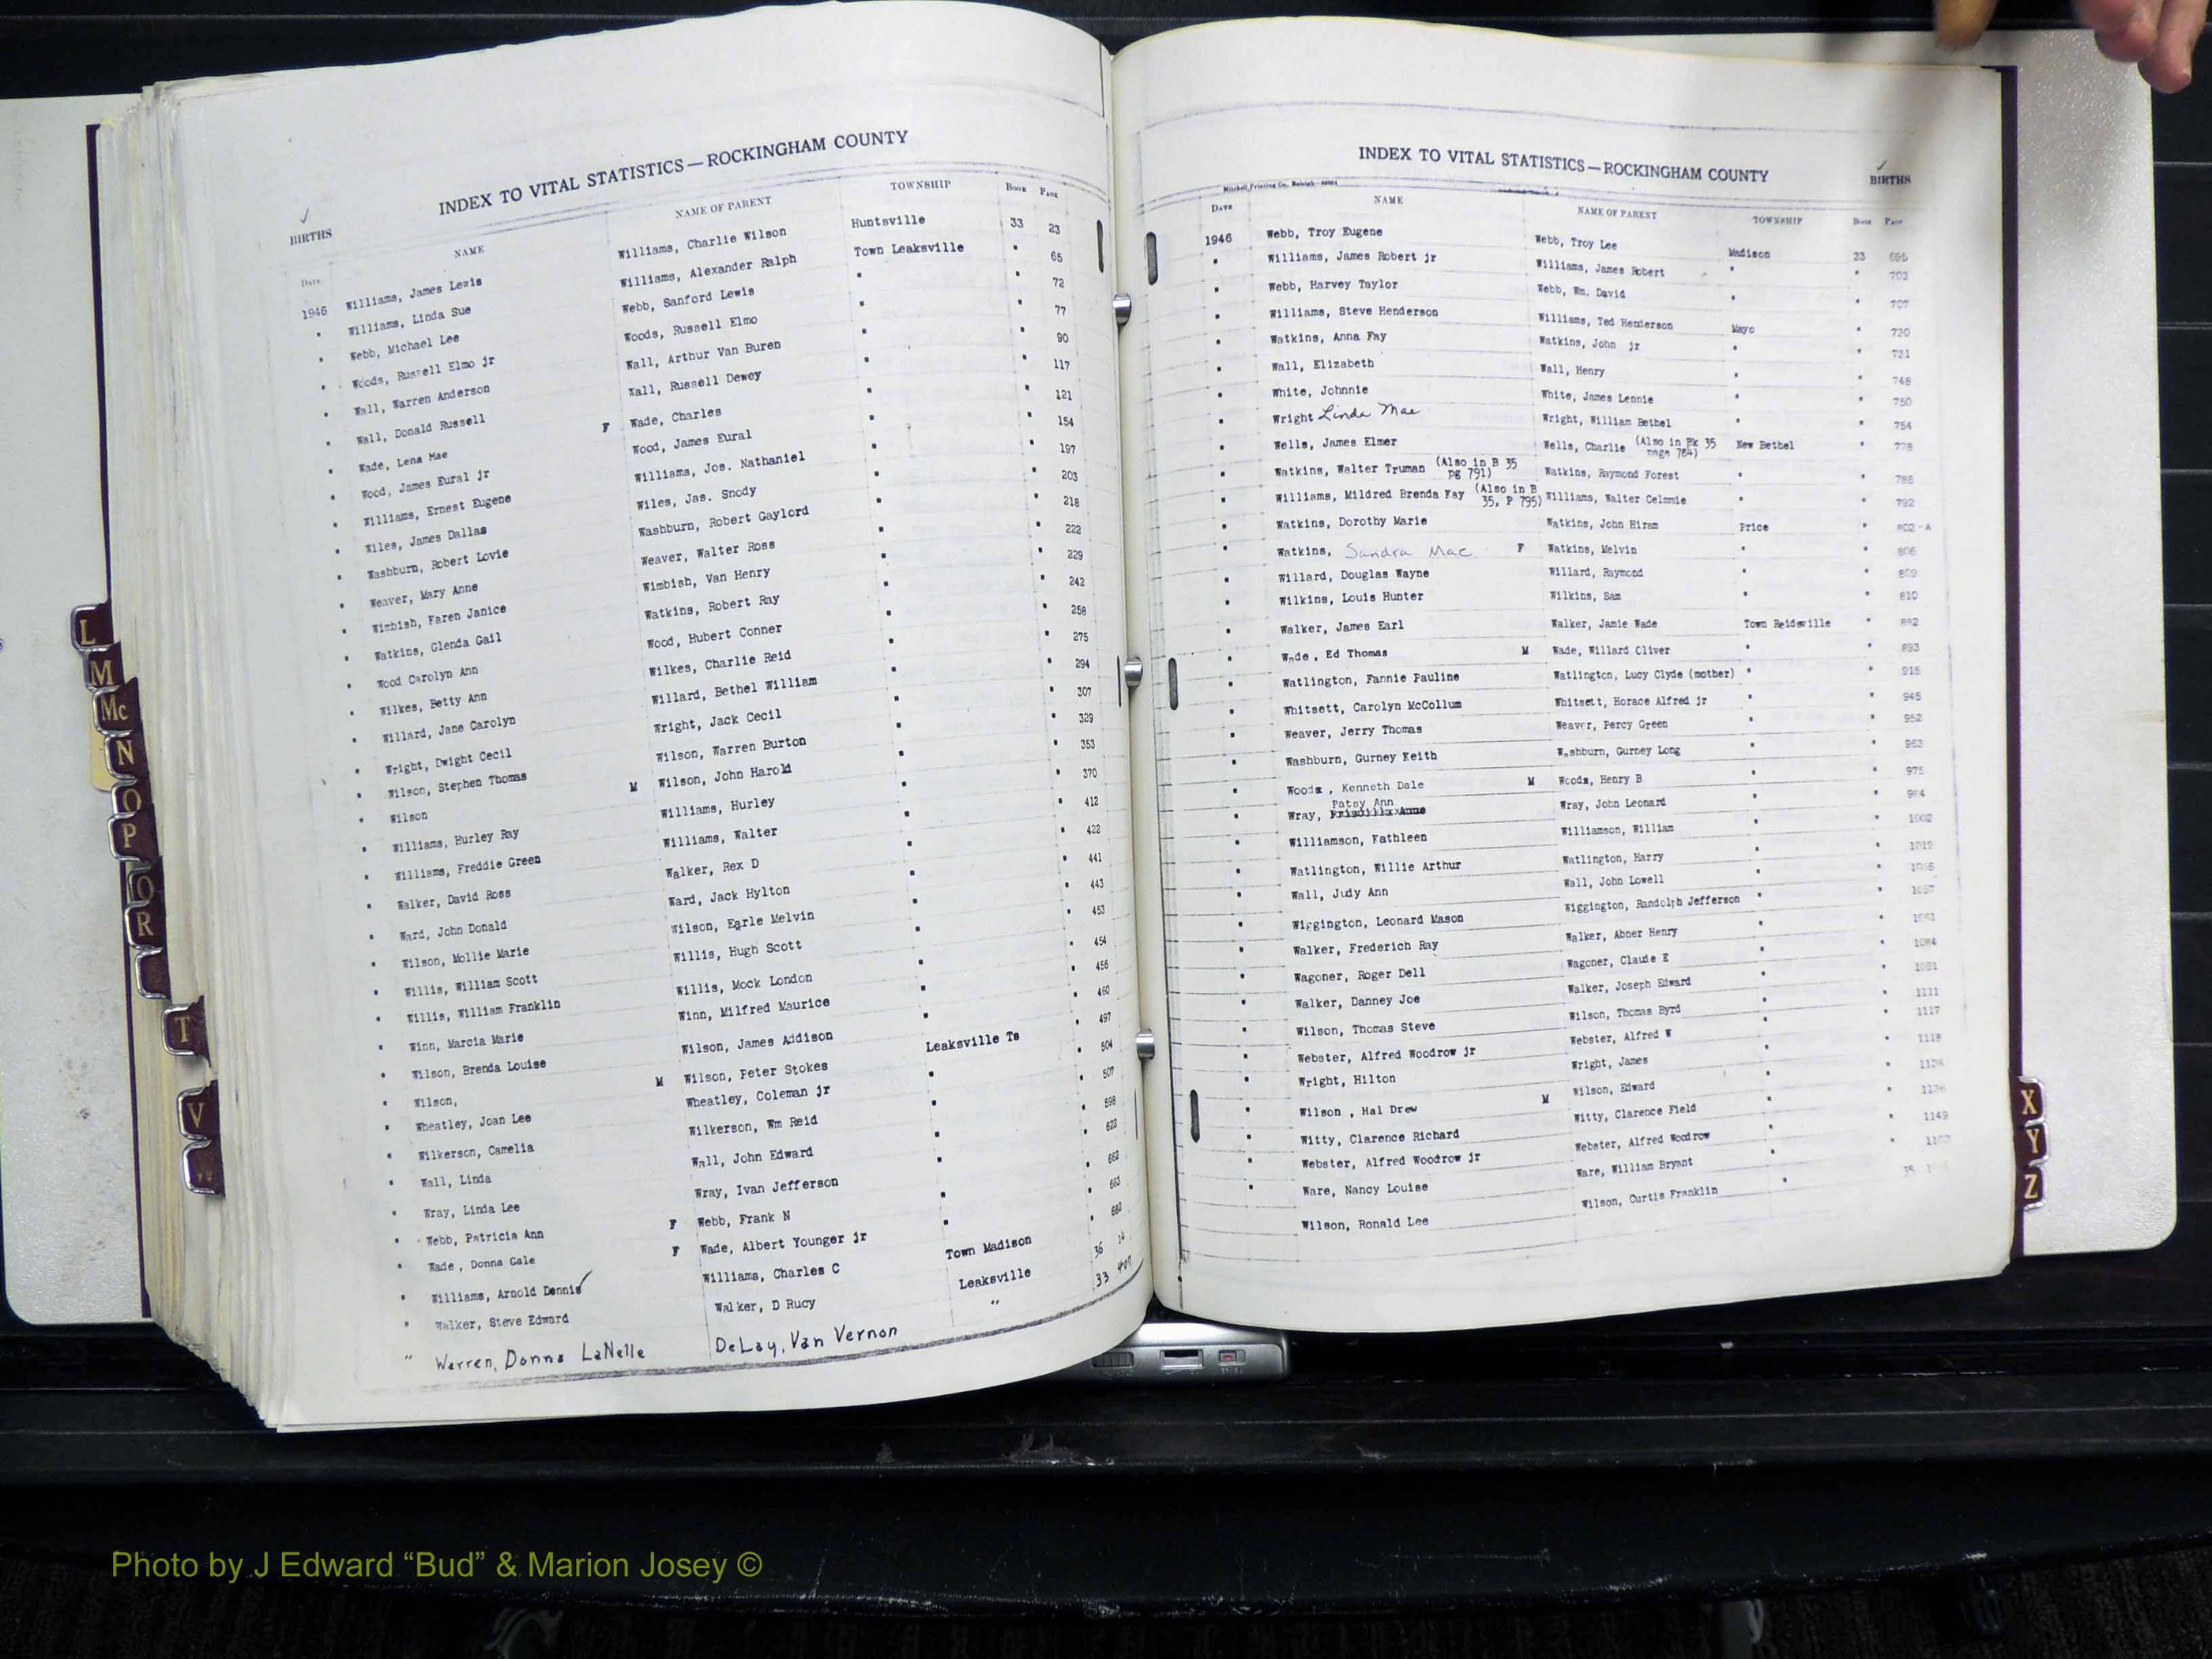 INDEX TO VITAL STATISTICS—ROCKINGHAM COUNTY
✓
BIRTHS
Date NAME NAME OF PARENT TOWNSHIP Book Page
1946 Williams, James Lewis Williams, Charlie Wilson Huntsville 33 23
" Williams, Linda Sue Williams, Alexander Ralph Town Leaksville " 65
" Webb, Michael Lee Webb, Sanford Lewis " " 72
" Woods, Russell Elmo jr Woods, Russell Elmo " " 77
" Wall, Warren Anderson Wall, Arthur Van Buren " " 90
" Wall, Donald Russell Wall, Russell Dewey " " 117
" Wade, Lena Mae F Wade, Charles " " 121
" Wood, James Eural jr Wood, James Eural " " 154
" Williams, Ernest Eugene Williams, Jos. Nathaniel " " 197
" Wiles, James Dallas Wiles, Jas. Snody " " 203
" Washburn, Robert Lovie Washburn, Robert Gaylord " " 218
" Weaver, Mary Anne Weaver, Walter Ross " " 222
" Wimbish, Faren Janice Wimbish, Van Henry " " 229
" Watkins, Glenda Gail Watkins, Robert Ray " " 242
" Wood Carolyn Ann Wood, Hubert Conner " " 258
" Wilkes, Betty Ann Wilkes, Charlie Reid " " 275
" Willard, Jane Carolyn Willard, Bethel William " " 294
" Wright, Dwight Cecil Wright, Jack Cecil " " 307
" Wilson, Stephen Thomas Wilson, Warren Burton " " 329
" Wilson M Wilson, John Harold " " 353
" Williams, Hurley Ray Williams, Hurley " " 370
" Williams, Freddie Green Williams, Walter " " 412
" Walker, David Ross Walker, Rex D " " 422
" Ward, John Donald Ward, Jack Hylton " " 441
" Wilson, Mollie Marie Wilson, Earle Melvin " " 443
" Willis, William Scott Willis, Hugh Scott " " 453
" Willis, William Franklin Willis, Mock London " " 454
" Winn, Marcia Marie Winn, Milfred Maurice " " 456
" Wilson, Brenda Louise Wilson, James Addison " " 460
" Wilson, M Wilson, Peter Stokes Leaksville Ts " 497
" Wheatley, Joan Lee Wheatley, Coleman jr " " 504
" Wilkerson, Camelia Wilkerson, Wm Reid " " 507
" Wall, Linda Wall, John Edward " " 598
" Wray, Linda Lee Wray, Ivan Jefferson " " 622
" Webb, Patricia Ann F Webb, Frank N " " 662
" Wade, Donna Gale F Wade, Albert Younger jr " " 663
" Williams, Arnold Dennis ✓ Williams, Charles C Town Madison " 682
" Walker, Steve Edward Walker, D Rucy Leaksville 36 14
" Warren, Donna LaNelle DeLay, Van Vernon " 33 407
INDEX TO VITAL STATISTICS—ROCKINGHAM COUNTY
✓
BIRTHS
Mitchell Printing Co., Raleigh
Date NAME NAME OF PARENT TOWNSHIP Book Page
1946 Webb, Troy Eugene Webb, Troy Lee Madison 33 695
" Williams, James Robert jr Williams, James Robert " " 703
" Webb, Harvey Taylor Webb, Wm. David " " 707
" Williams, Steve Henderson Williams, Ted Henderson Mayo " 730
" Watkins, Anna Fay Watkins, John jr " " 731
" Wall, Elizabeth Wall, Henry " " 748
" White, Johnnie White, James Lennie " " 750
" Wright Linda Mae Wright, William Bethel " " 754
" Wells, James Elmer Wells, Charlie (Also in Bk 35 page 784) New Bethel " 778
" Watkins, Walter Truman (Also in B 35 pg 791) Watkins, Raymond Forest " " 786
" Williams, Mildred Brenda Fay (Also in B 35, P 795) Williams, Walter Celmnie " " 792
" Watkins, Dorothy Marie Watkins, John Hiram Price " 802-A
" Watkins, Sandra Mae F Watkins, Melvin " " 806
" Willard, Douglas Wayne Willard, Raymond " " 809
" Wilkins, Louis Hunter Wilkins, Sam " " 810
" Walker, James Earl Walker, Jamie Wade Town Reidsville " 882
" Wade , Ed Thomas M Wade, Willard Oliver " " 893
" Watlington, Fannie Pauline Watlington, Lucy Clyde (mother) " " 915
" Whitsett, Carolyn McCollum Whitsett, Horace Alfred jr " " 945
" Weaver, Jerry Thomas Weaver, Percy Green " " 952
" Washburn, Gurney Keith Washburn, Gurney Long " " 963
" Woods , Kenneth Dale M Woods, Henry B " " 975
Patsy Ann
" Wray, Priscilla Anne Wray, John Leonard " " 984
" Williamson, Fathleen Williamson, William " " 1002
" Watlington, Willie Arthur Watlington, Harry " " 1019
" Wall, Judy Ann Wall, John Lowell "
" Wiggington, Leonard Mason Wiggington, Randolph Jefferson " " 1057
" Walker, Frederich Ray Walker, Abner Henry "
" Wagoner, Roger Dell Wagoner, Claude E " " 1084
" Walker, Danney Joe Walker, Joseph Edward " " 1091
" Wilson, Thomas Steve Wilson, Thomas Byrd " " 1111
" Webster, Alfred Woodrow jr Webster, Alfred W " " 1117
" Wright, Hilton Wright, James " " 1118
" Wilson , Hal Drew M Wilson, Edward "
" Witty, Clarence Richard Witty, Clarence Field " " 1136
" Webster, Alfred Woodrow jr Webster, Alfred Woodrow " " 1149
" Ware, Nancy Louise Ware, William Bryant "
Wilson, Ronald Lee Wilson, Curtis Franklin " 35
L
M
Mc
N
O
P
Q
R
T
V
W
X
Y
Z
Photo by J Edward “Bud” & Marion Josey ©